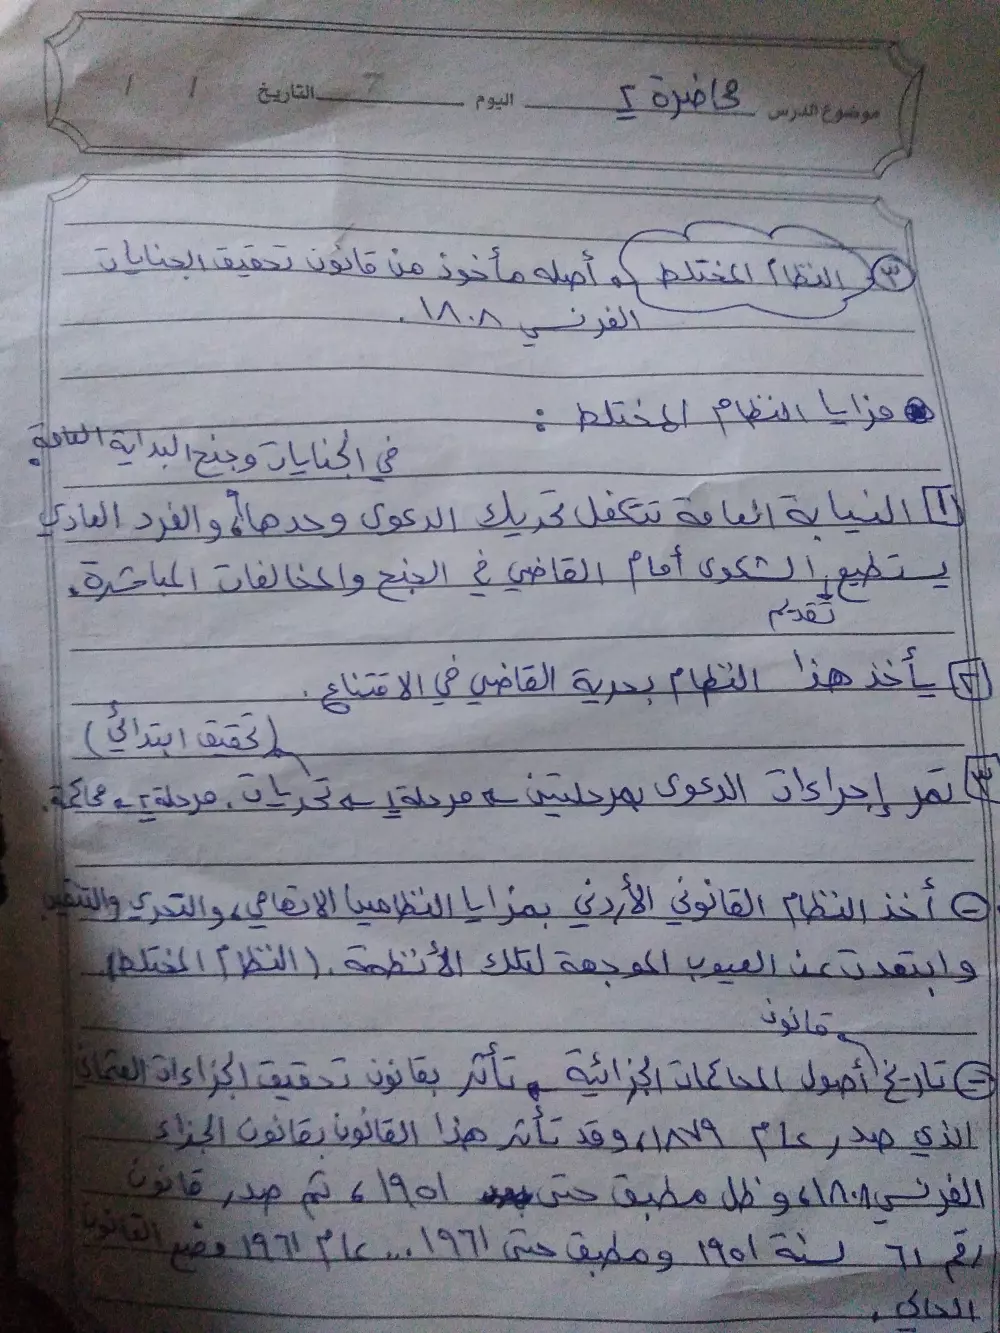 موضوع الدرس محاضرة ٢ اليوم التاريخ / /
٣ النظام المختلط ، أصله مأخوذ من قانون تحقيق الجنايات
الفرنسي ١٨٠٨.
مزايا النظام المختلط :
في الجنايات وجنح البداية العامة
١ النيابة العامة تتكفل تحريك الدعوى وحدها، والفرد العادي
يستطيع الشكوى أمام القاضي في الجنح والمخالفات المباشرة.
تقديم
٢ يأخذ هذا النظام بحرية القاضي في الاقتناع.
(تحقيق ابتدائي)
٣ تمر إجراءات الدعوى بمرحلتين مرحلة ١ تحريات. مرحلة ٢ محاكمة.
أخذ النظام القانوني الأردني بمزايا النظامين الاتهامي، والتحري والتنقيب
وابتعدت عن العيوب الموجهة لتلك الأنظمة. (النظام المختلط)
قانون
تاريخ أصول المحاكمات الجزائية تأثر بقانون تحقيق الجزاءات العثماني
الذي صدر عام ١٨٧٩، وقد تأثر هذا القانون بقانون الجزاء
الفرنسي ١٨٠٨، وظل مطبق حتى ١٩٥١، ثم صدر قانون
رقم ٦١ لسنة ١٩٥١ ومطبق حتى ١٩٦١... عام ١٩٦١ وضع القانون
الحالي.